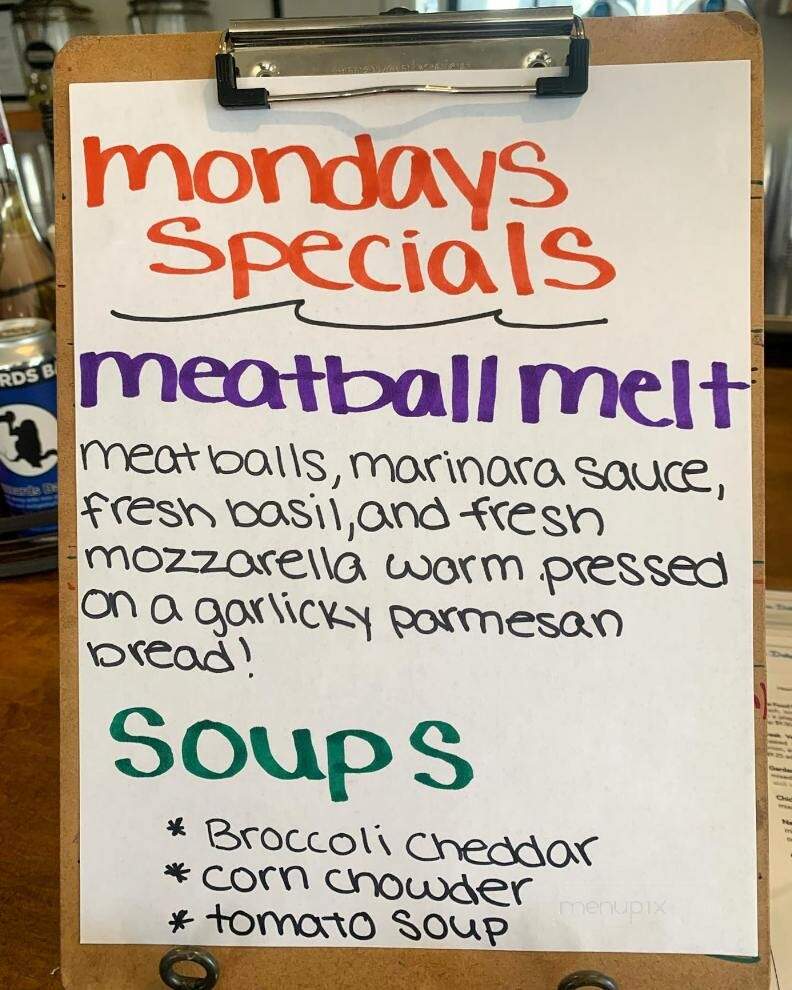 mondays
specials
meatball melt
meatballs, marinara sauce,
fresh basil, and fresh
mozzarella warm pressed
on a garlicky parmesan
bread!
soups
* Broccoli cheddar
* corn chowder
* tomato soup
menupix
RDS B